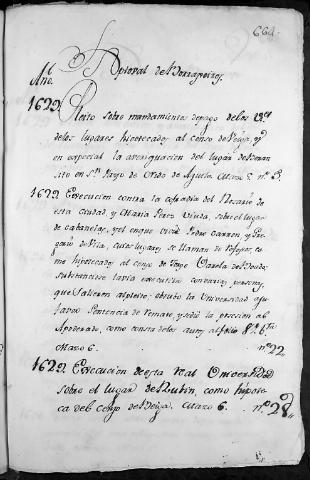 664.
Año.
1622. Pleito sobre mandamientos de pago de los
de los lugares hipotecados al censo de Veiga, y
en especial la aberiguacion del lugar de
sito en Sn. Payo de de Aguila. Mazo 5. nº 3.
1622. Execucion contra la cofradia del Rosario de
esta ciudad, y Maria Perez Viuda, sobre el lugar
de cabaneles, y el en que vivia Pedro Carron, y Gre,
gorio de Vila, cuios lugares se llaman de
mo hipotecados al censo de Payo Varela de
substanciose la via executiva con varias personas,
que salieron al pleito; obtubo la Universidad a su
favor Sentencia de remate, y se dio la posesion al
Apoderado, como consta de los autos, al folio
Mazo 6. nº 22,,
1622. Execucion de esta real Universidad
sobre el lugar de Lubin, como hipote,
ca del censo de Veiga. Mazo 6. nº 28,,